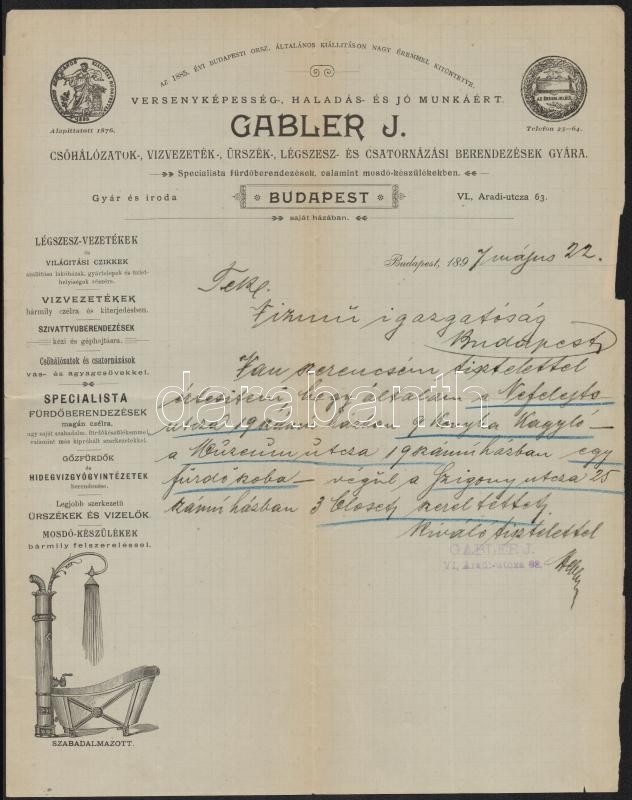 AZ 1885. ÉVI BUDAPESTI ORSZ. ÁLTALÁNOS KIÁLLITÁSON NAGY ÉREMMEL KITÜNTETVE.
VERSENYKÉPESSÉG-, HALADÁS- ÉS JÓ MUNKÁÉRT.
Alapittatott 1876.
GABLER J.
Telefon 23—64.
CSŐHÁLÓZATOK-, VIZVEZETÉK-, ÜRSZÉK-, LÉGSZESZ- ÉS CSATORNÁZÁSI BERENDEZÉSEK GYÁRA.
Specialista fürdőberendezések, valamint mosdó-készülékekben.
Gyár és iroda
BUDAPEST
VI., Aradi-utcza 63.
saját házában.
LÉGSZESZ-VEZETÉKEK
és
VILÁGITÁSI CZIKKEK
VIZVEZETÉKEK
bármily czélra és kiterjedésben.
SZIVATTYUBERENDEZÉSEK
kézi és géphajtásra.
Csőhálózatok és csatornázások
vas- és agyagcsövekkel.
SPECIALISTA
FÜRDŐBERENDEZÉSEK
magán czélra.
ugy saját szabadalm. fürdőkészülékemmel,
valamint más kipróbált szerkezetekkel.
GŐZFÜRDŐK
és
HIDEGVIZGYÓGYINTÉZETEK
berendezése.
Legjobb szerkezetü
ÜRSZÉKEK ÉS VIZELŐK.
MOSDÓ-KÉSZÜLÉKEK
bármily felszereléssel.
SZABADALMAZOTT.
Budapest, 1897 május 22.
Tek.
Vizmü igazgatóság
Budapest
Van szerencsém tisztelettel
értesiteni hogy általam a Nefelejts
utcza 19 számú házban 9 konyha Kagyló –
a Múzeum utcza 19 számú házban egy
fürdőszoba – végül a Szigony utcza 25
számú házban 3 Closet szereltetett
Kiváló tisztelettel
GABLER J.
VI, Aradi-utcza 63.
darabanth